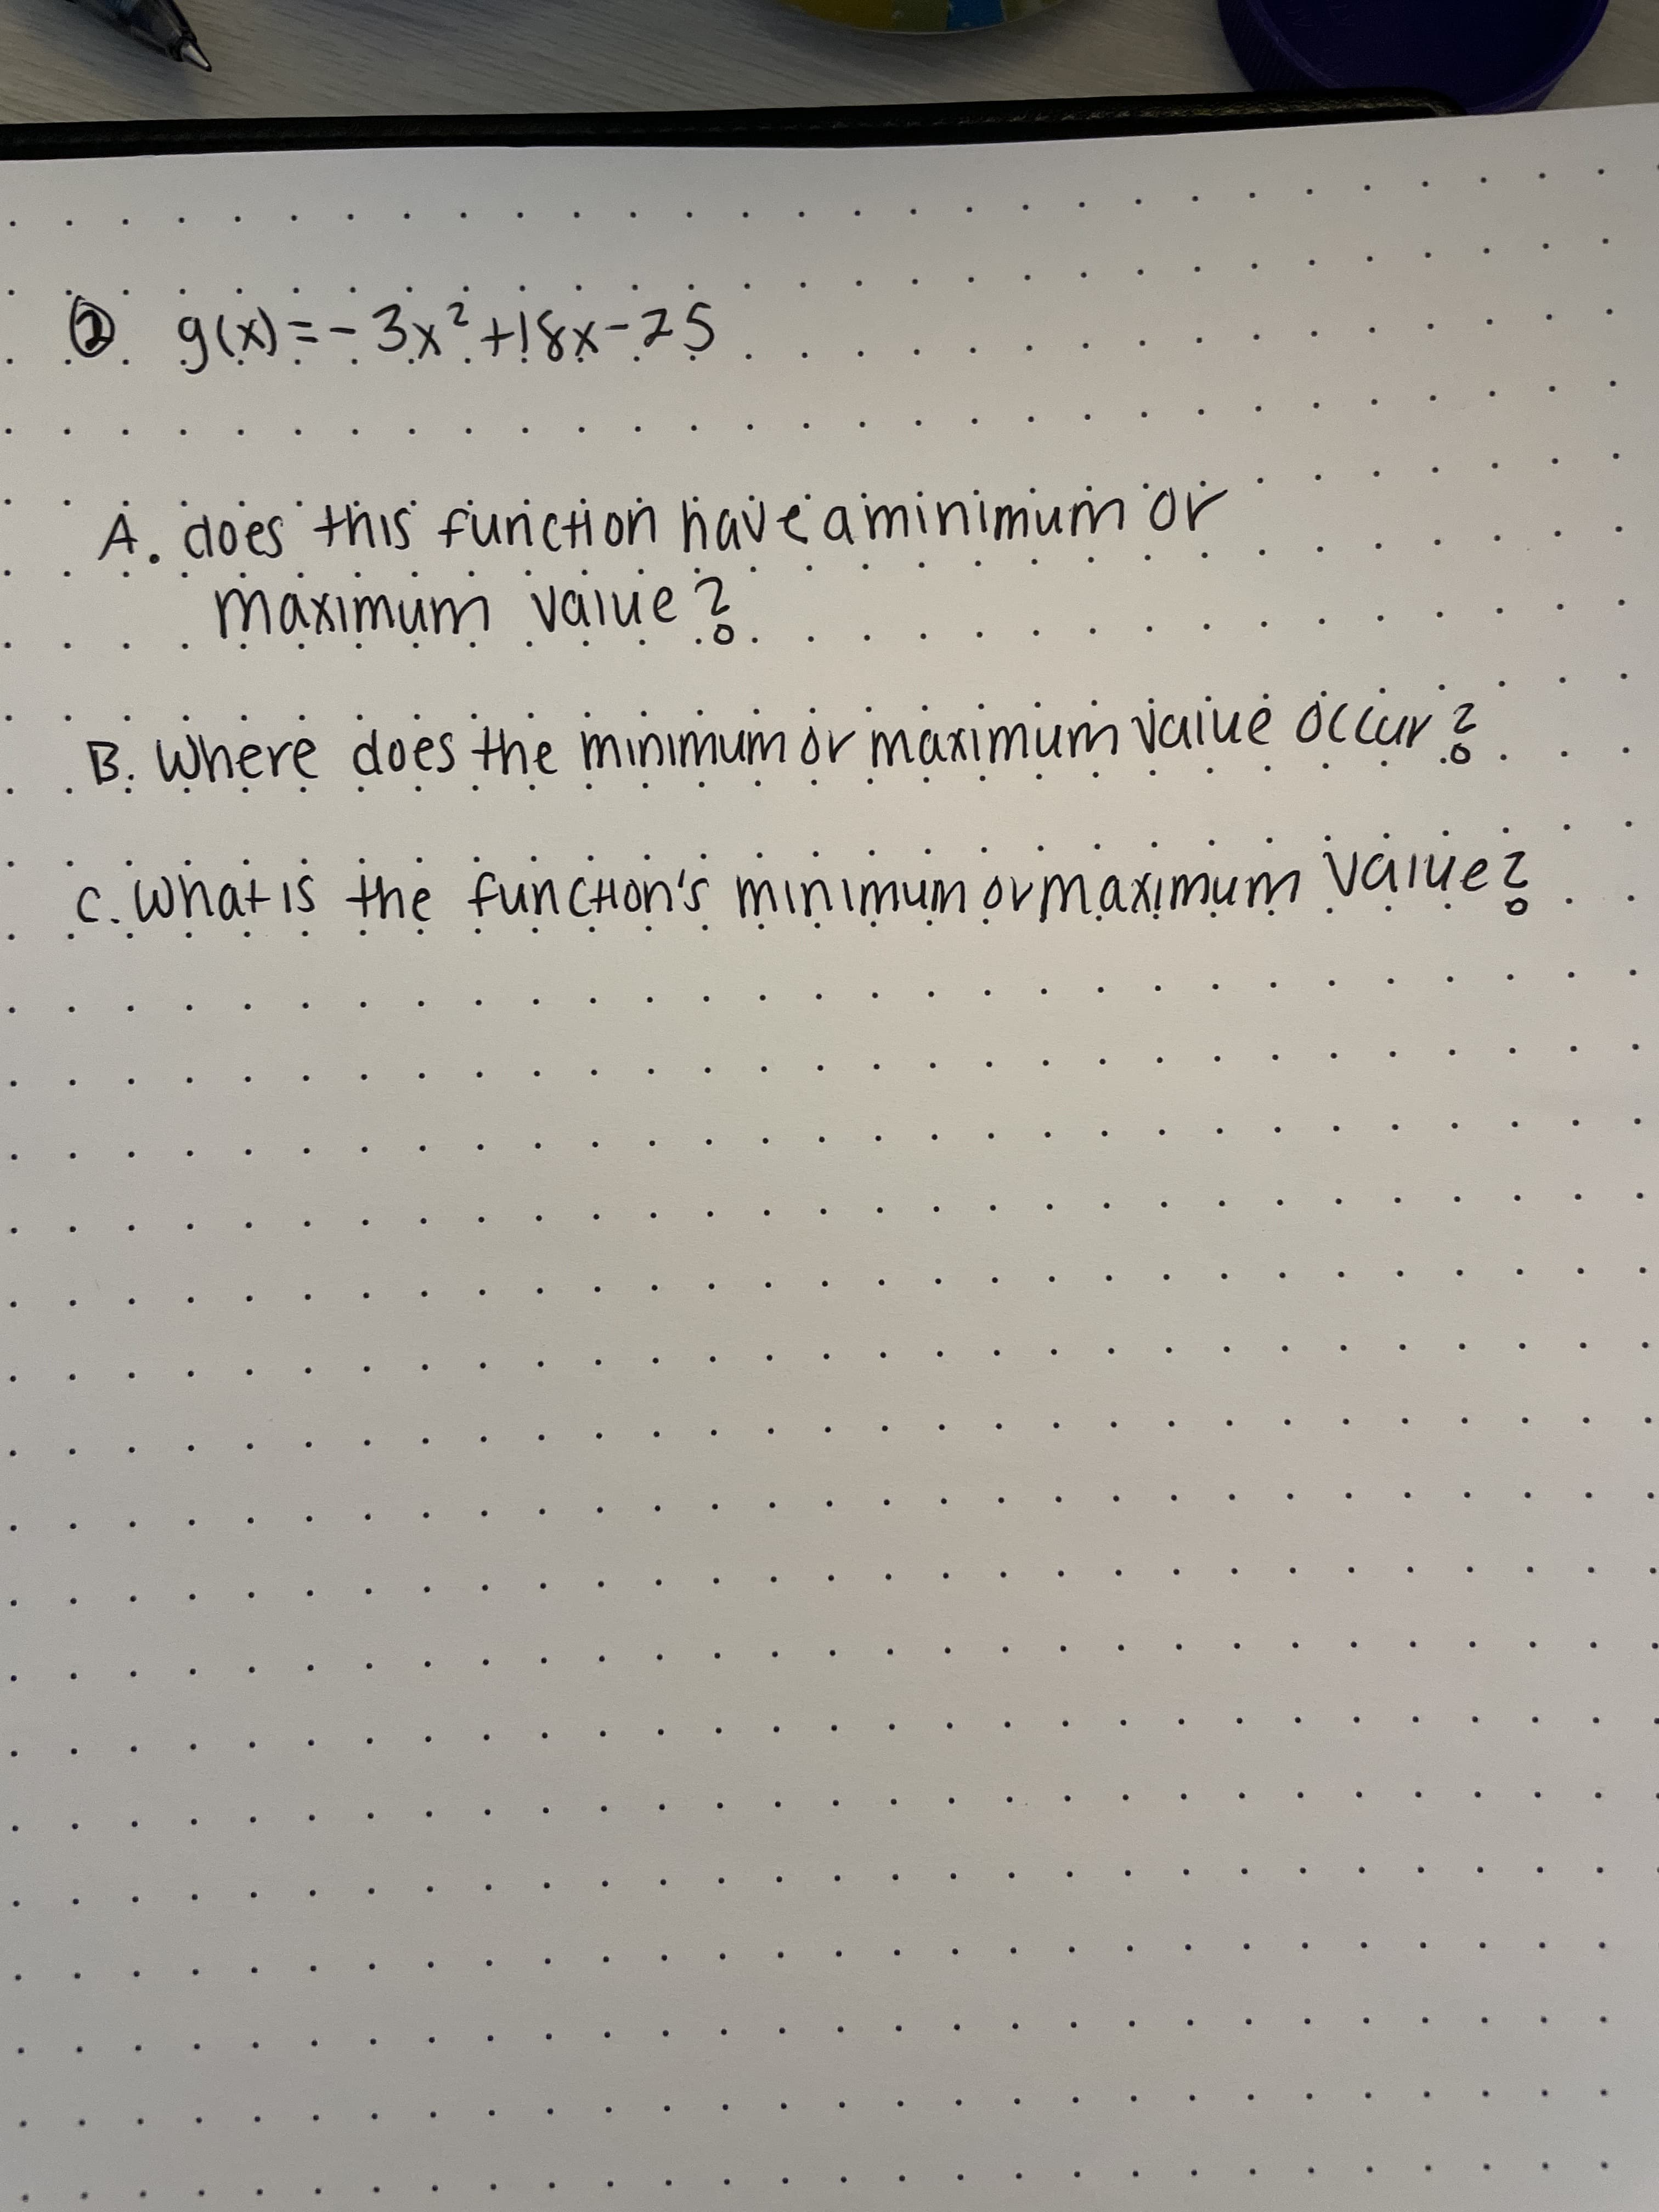 ② g(x)=-3x²+18x-25
A. does this function have a minimum or
maximum value?
B. Where does the minimum or maximum value occur?
C. What is the function's minimum or maximum value?